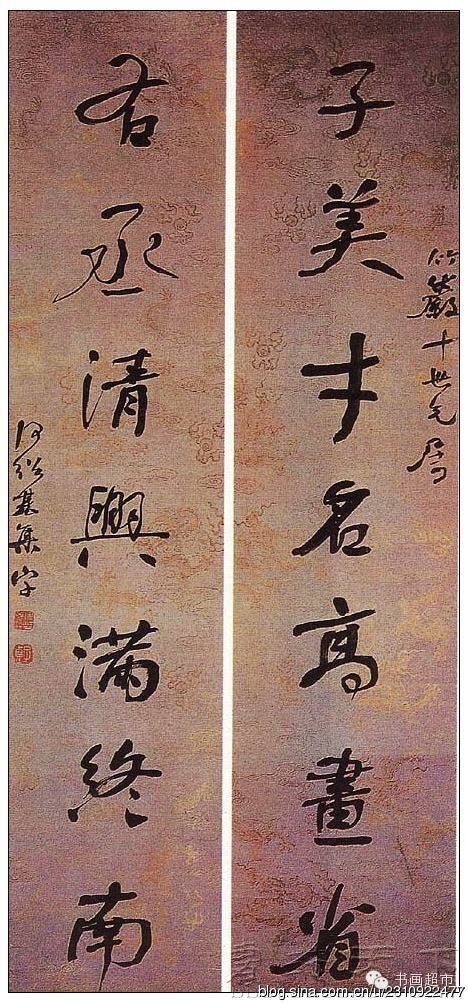 竹巖十世兄屬
子美才名高畫省
右丞清興滿終南
何紹基集字
书画超市
blog.sina.com.cn/u/2310922477